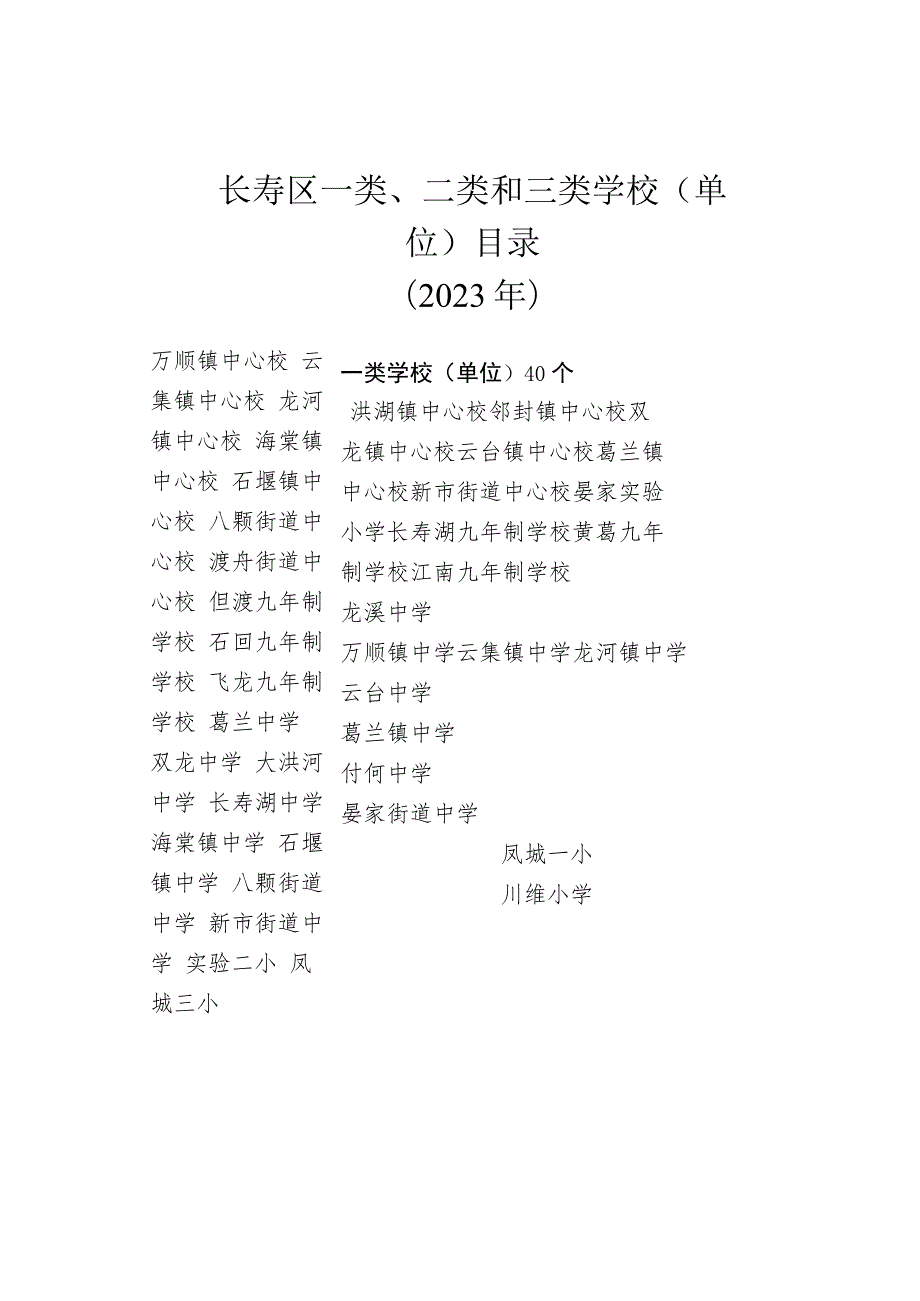 长寿区一类、二类和三类学校（单
位）目录
(2023 年)
万顺镇中心校 云
集镇中心校 龙河
镇中心校 海棠镇
中心校 石堰镇中
心校 八颗街道中
心校 渡舟街道中
心校 但渡九年制
学校 石回九年制
学校 飞龙九年制
学校 葛兰中学
双龙中学 大洪河
中学 长寿湖中学
海棠镇中学 石堰
镇中学 八颗街道
中学 新市街道中
学 实验二小 凤
城三小
一类学校（单位）40 个
洪湖镇中心校邻封镇中心校双
龙镇中心校云台镇中心校葛兰镇
中心校新市街道中心校晏家实验
小学长寿湖九年制学校黄葛九年
制学校江南九年制学校
龙溪中学
万顺镇中学云集镇中学龙河镇中学
云台中学
葛兰镇中学
付何中学
晏家街道中学
凤城一小
川维小学